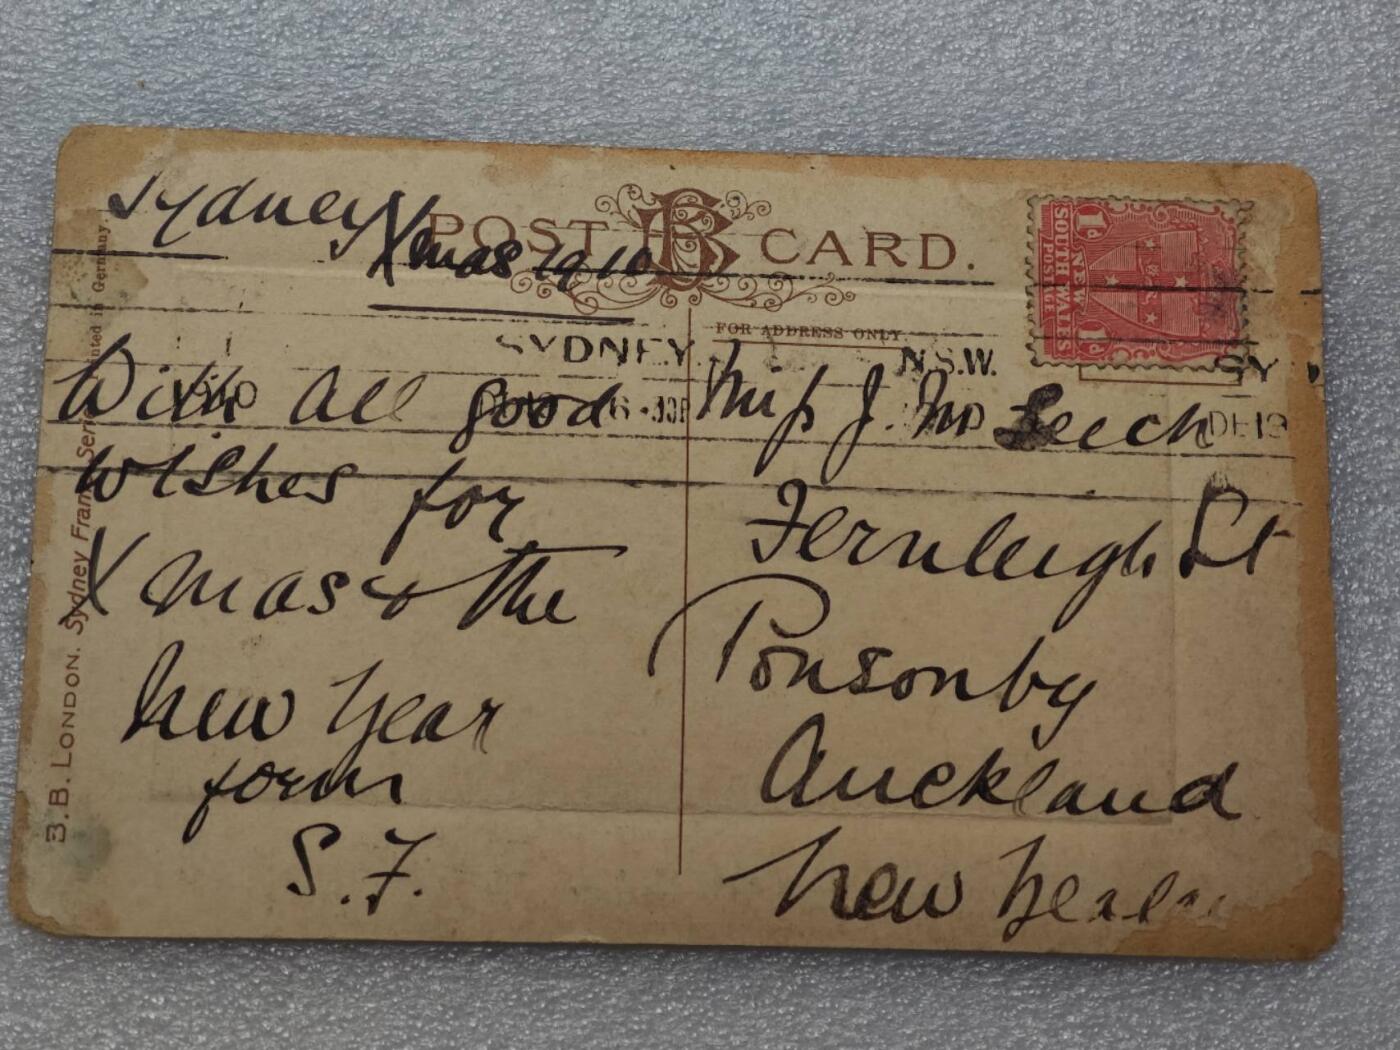 Sydney Xmas 1910
POST CARD.
FOR ADDRESS ONLY
1D
SOUTH WALES
NEW
POSTAGE
1D
SYDNEY N.S.W. SY
6 - 30P DE 19
With all good
wishes for
Xmas & the
New Year
form
S. F.
Miss J. M Leech
Fernleigh St
Ponsonby
Auckland
New
B.B. LONDON. Sydney Series Printed in Germany.